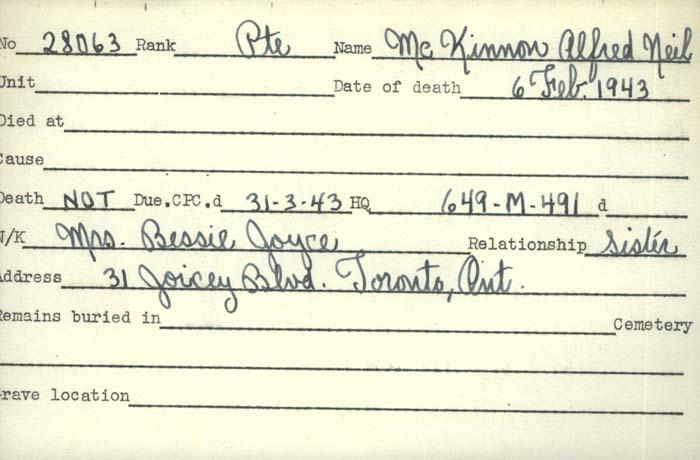 No 28063 Rank Pte Name Mc Kinnon Alfred Neil
Unit Date of death 6 Feb. 1943
Died at
Cause
Death NOT Due.CPC.d 31-3-43 HQ 649-M-491 d
N/K Mrs. Bessie Joyce Relationship Sister
Address 31 Joicey Blvd. Toronto, Ont.
Remains buried in Cemetery
Grave location